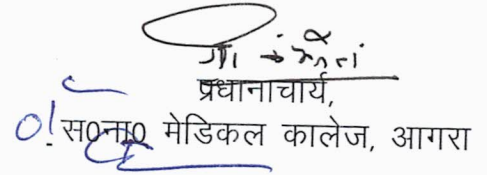 प्रधानाचार्य,
स0ना0 मेडिकल कालेज, आगरा